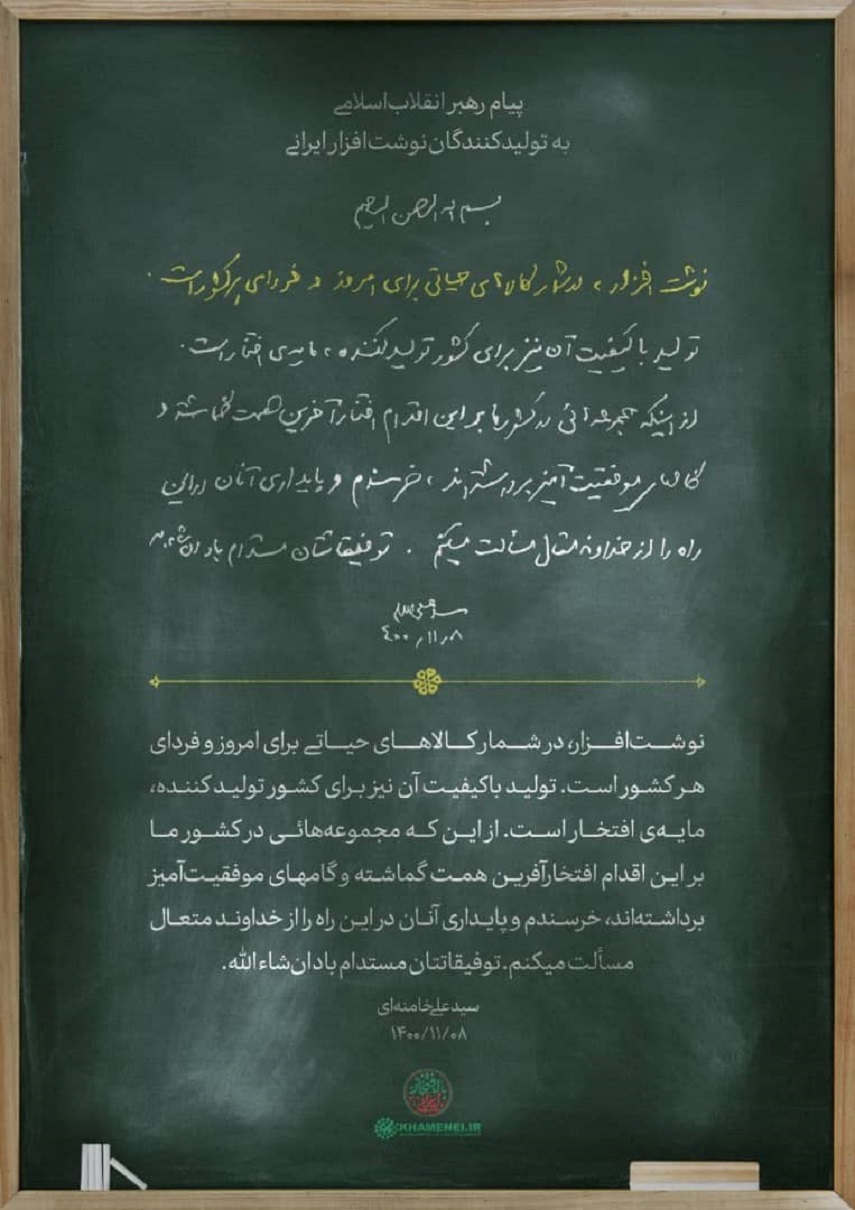 پیام رهبر انقلاب اسلامی
به تولیدکنندگان نوشت‌افزار ایرانی
بسم الله الرحمن الرحیم
نوشت افزار، در شمار کالاهای حیاتی برای امروز و فردای هر کشور است.
تولید با کیفیت آن نیز برای کشور تولید کننده، مایه‌ی افتخار است.
از اینکه مجموعه‌هائی در کشور ما بر این اقدام افتخارآفرین همت گماشته و
گامهای موفقیت‌آمیز برداشته‌اند، خرسندم و پایداری آنان در این
راه را از خداوند متعال مسألت میکنم. توفیقاتتان مستدام باد ان‌شاءالله
سیدعلی خامنه‌ای
۴۰۰/۱۱/۸
نوشت‌افـزار، در شـمار کـالاهـای حیـاتی برای امروز و فردای
هر کشور است. تولید باکیفیت آن نیز برای کشور تولید کننده،
مایـه‌ی افتخـار اسـت. از این کـه مجموعه‌هائـی در کشور مـا
بر این اقدام افتخارآفرین همت گماشته و گامهای موفقیت‌آمیز
برداشته‌اند، خرسندم و پایـداری آنـان در این راه را از خداونـد متعـال
مسألت میکنم. توفیقاتتان مستدام باد ان‌شاءالله.
سید علی خامنه‌ای
۱۴۰۰/۱۱/۰۸
KHAMENEI.IR